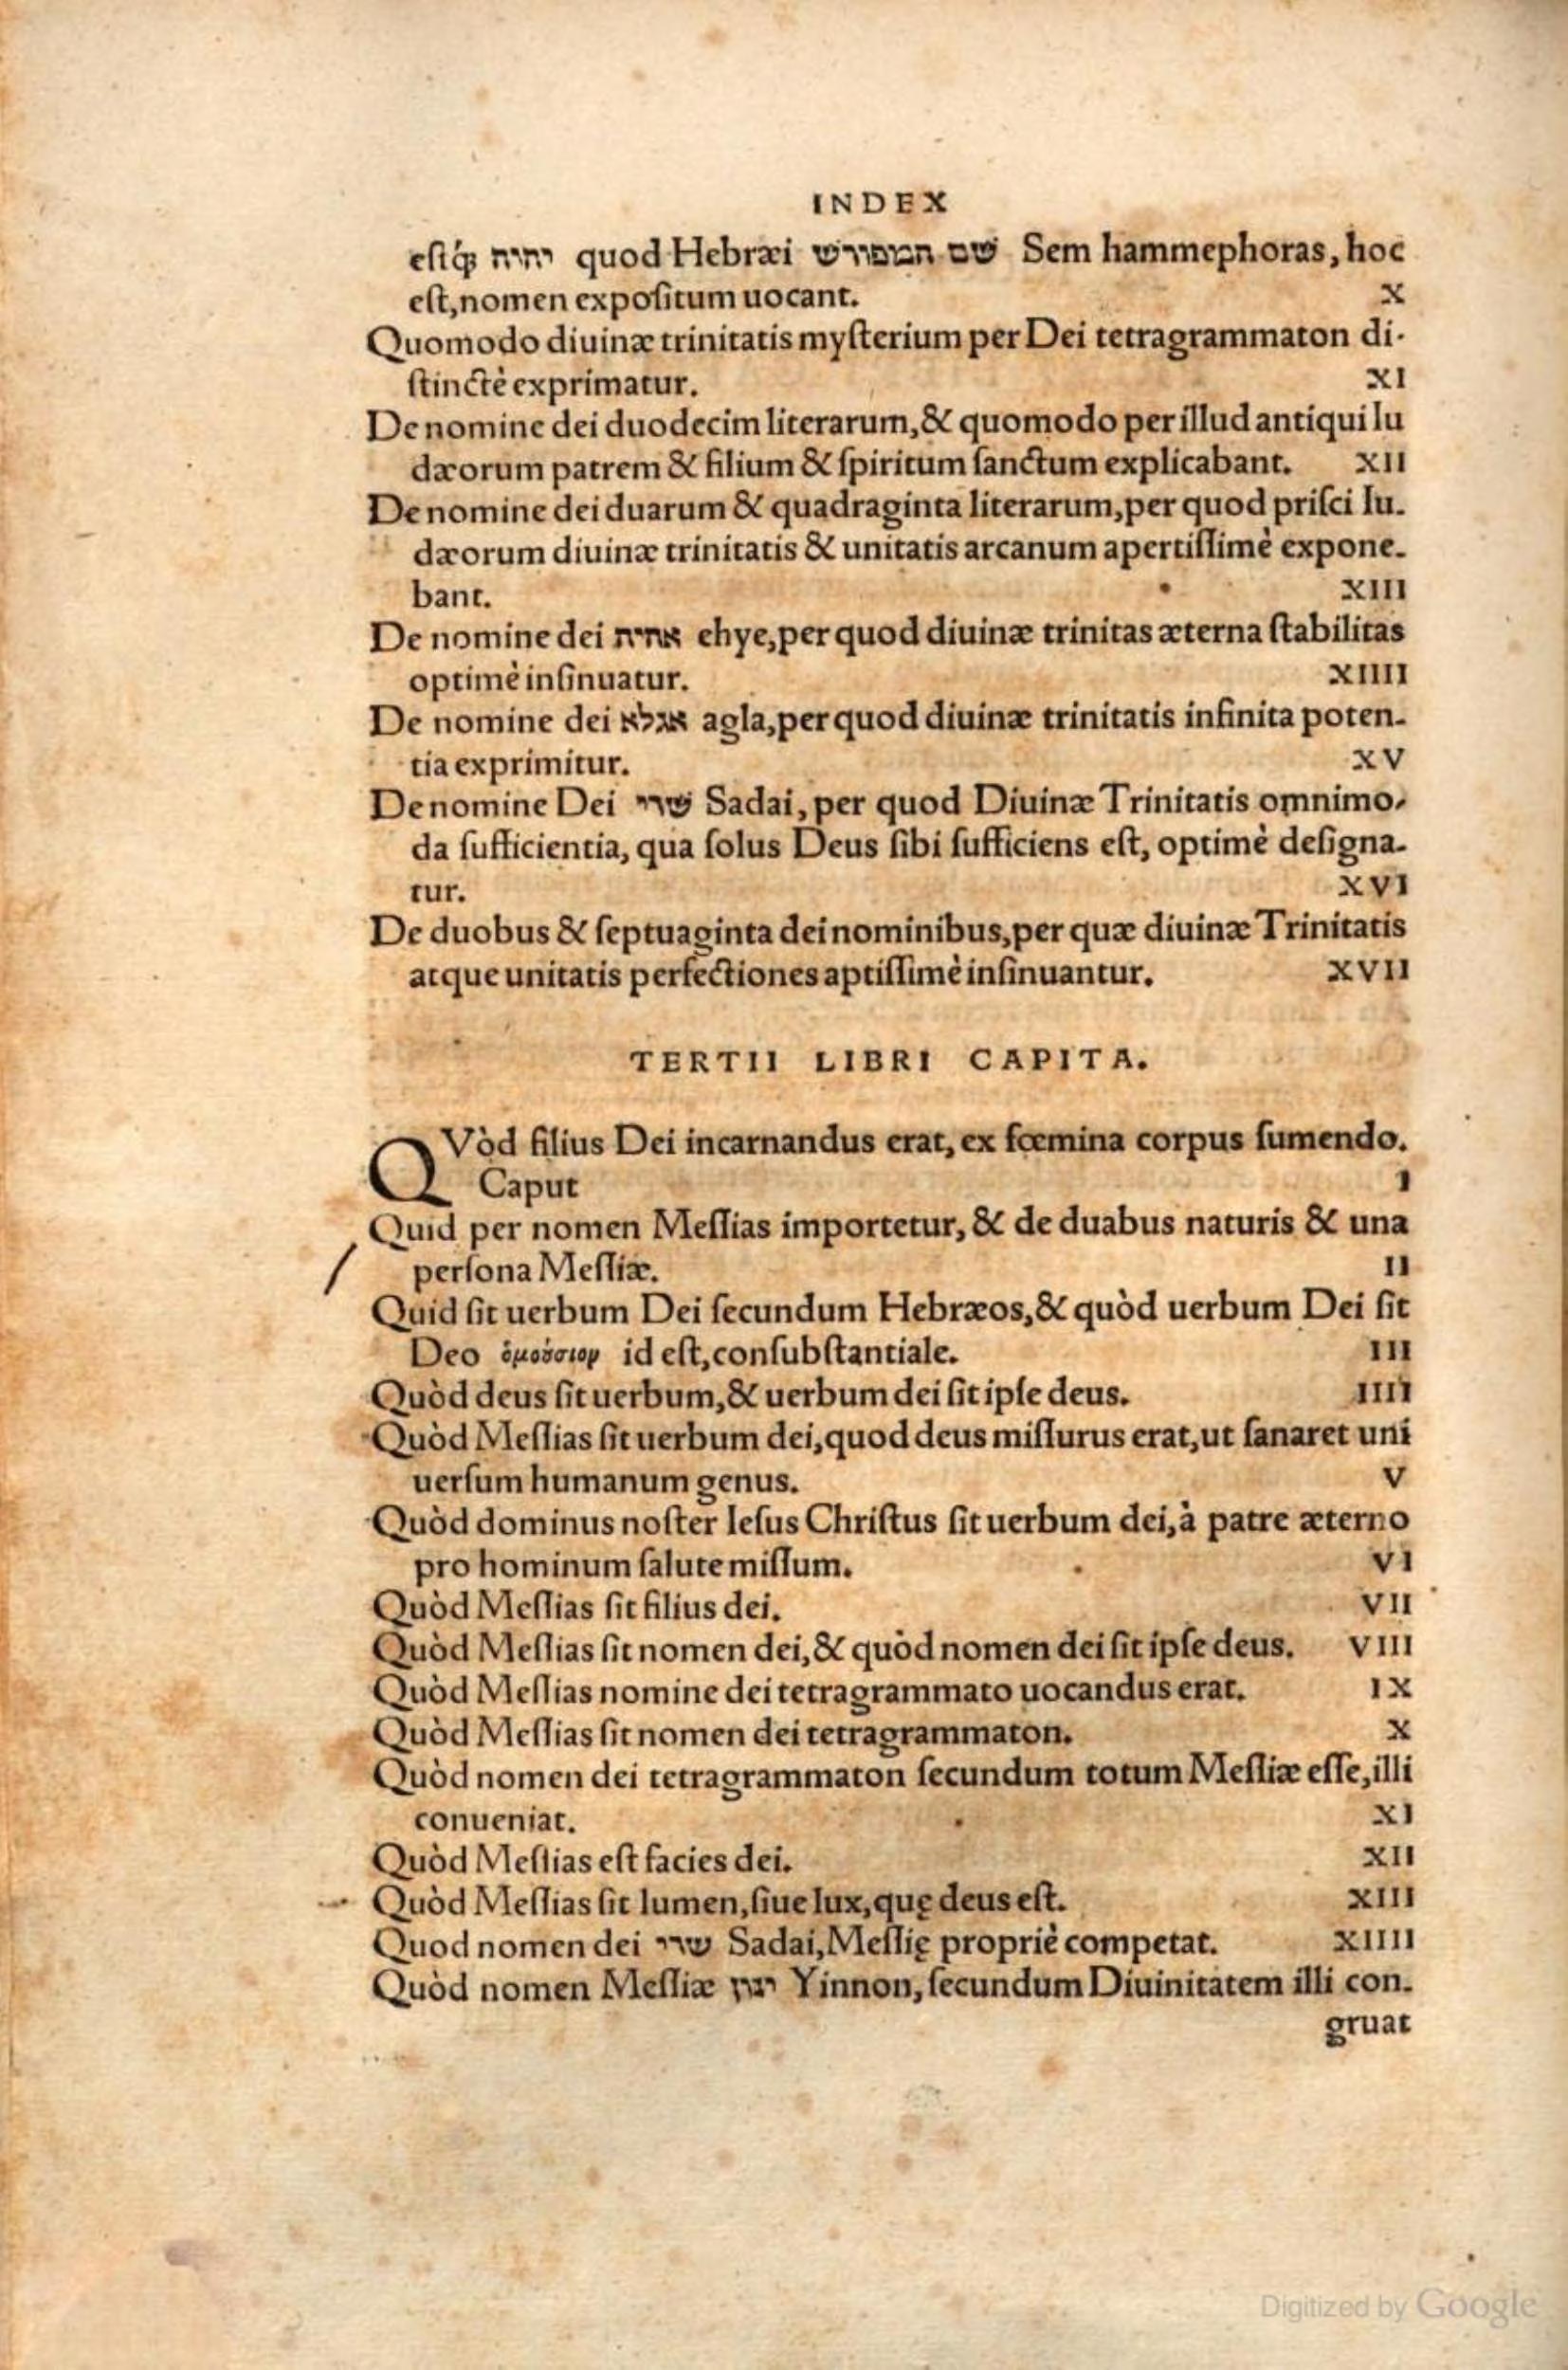 INDEX
estq́ꝫ יהוה quod Hebræi שם המפורש Sem hammephoras, hoc
est, nomen expositum uocant. X
Quomodo diuinæ trinitatis mysterium per Dei tetragrammaton di-
stinctè exprimatur. XI
De nomine dei duodecim literarum, & quomodo per illud antiqui Iu
dæorum patrem & filium & spiritum sanctum explicabant. XII
De nomine dei duarum & quadraginta literarum, per quod prisci Iu-
dæorum diuinæ trinitatis & unitatis arcanum apertissimè expone-
bant. XIII
De nomine dei אהיה ehye, per quod diuinæ trinitas æterna stabilitas
optimè insinuatur. XIIII
De nomine dei אגלא agla, per quod diuinæ trinitatis infinita poten-
tia exprimitur. XV
De nomine Dei שדי Sadai, per quod Diuinæ Trinitatis omnimo-
da sufficientia, qua solus Deus sibi sufficiens est, optimè designa-
tur. XVI
De duobus & septuaginta dei nominibus, per quæ diuinæ Trinitatis
atque unitatis perfectiones aptissimè insinuantur. XVII
TERTII LIBRI CAPITA.
QVòd filius Dei incarnandus erat, ex fœmina corpus sumendo.
Caput I
Quid per nomen Messias importetur, & de duabus naturis & una
persona Messiæ. II
Quid sit uerbum Dei secundum Hebræos, & quòd uerbum Dei sit
Deo ὁμοούσιον id est, consubstantiale. III
Quòd deus sit uerbum, & uerbum dei sit ipse deus. IIII
Quòd Messias sit uerbum dei, quod deus missurus erat, ut sanaret uni
uersum humanum genus. V
Quòd dominus noster Iesus Christus sit uerbum dei, à patre æterno
pro hominum salute missum. VI
Quòd Messias sit filius dei. VII
Quòd Messias sit nomen dei, & quòd nomen dei sit ipse deus. VIII
Quòd Messias nomine dei tetragrammato uocandus erat. IX
Quòd Messias sit nomen dei tetragrammaton. X
Quòd nomen dei tetragrammaton secundum totum Messiæ esse, illi
conueniat. XI
Quòd Messias est facies dei. XII
Quòd Messias sit lumen, siue lux, quę deus est. XIII
Quod nomen dei שדי Sadai, Messię propriè competat. XIIII
Quòd nomen Messiæ ינון Yinnon, secundum Diuinitatem illi con-
gruat
Digitized by Google